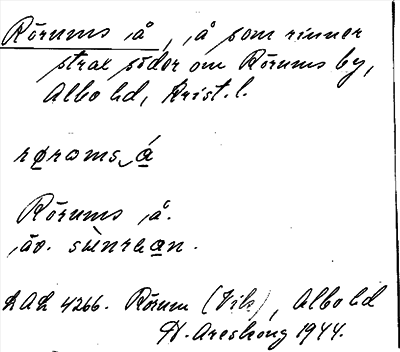 Rörums å, å som rinner
strax söder om Rörums by,
Albo hd, Krist. l.
rørωms‿á
Rörums å.
äv. sùnrean.
LAL 4266. Rörum (Vik), Albo hd
H. Areskoug 1944.